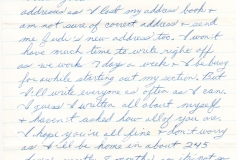 address as I lost my address book &
am not sure of correct address & send
me Judi's new address too. I won't
have much time to write right off
as we work 7 days a week & I'll be busy
for awhile starting out my section. But
I'll write everyone as often as I can.
I guess I written all about myself
& haven't asked how all of you are.
I hope you're all fine & don't worry
as I will be home in about 245